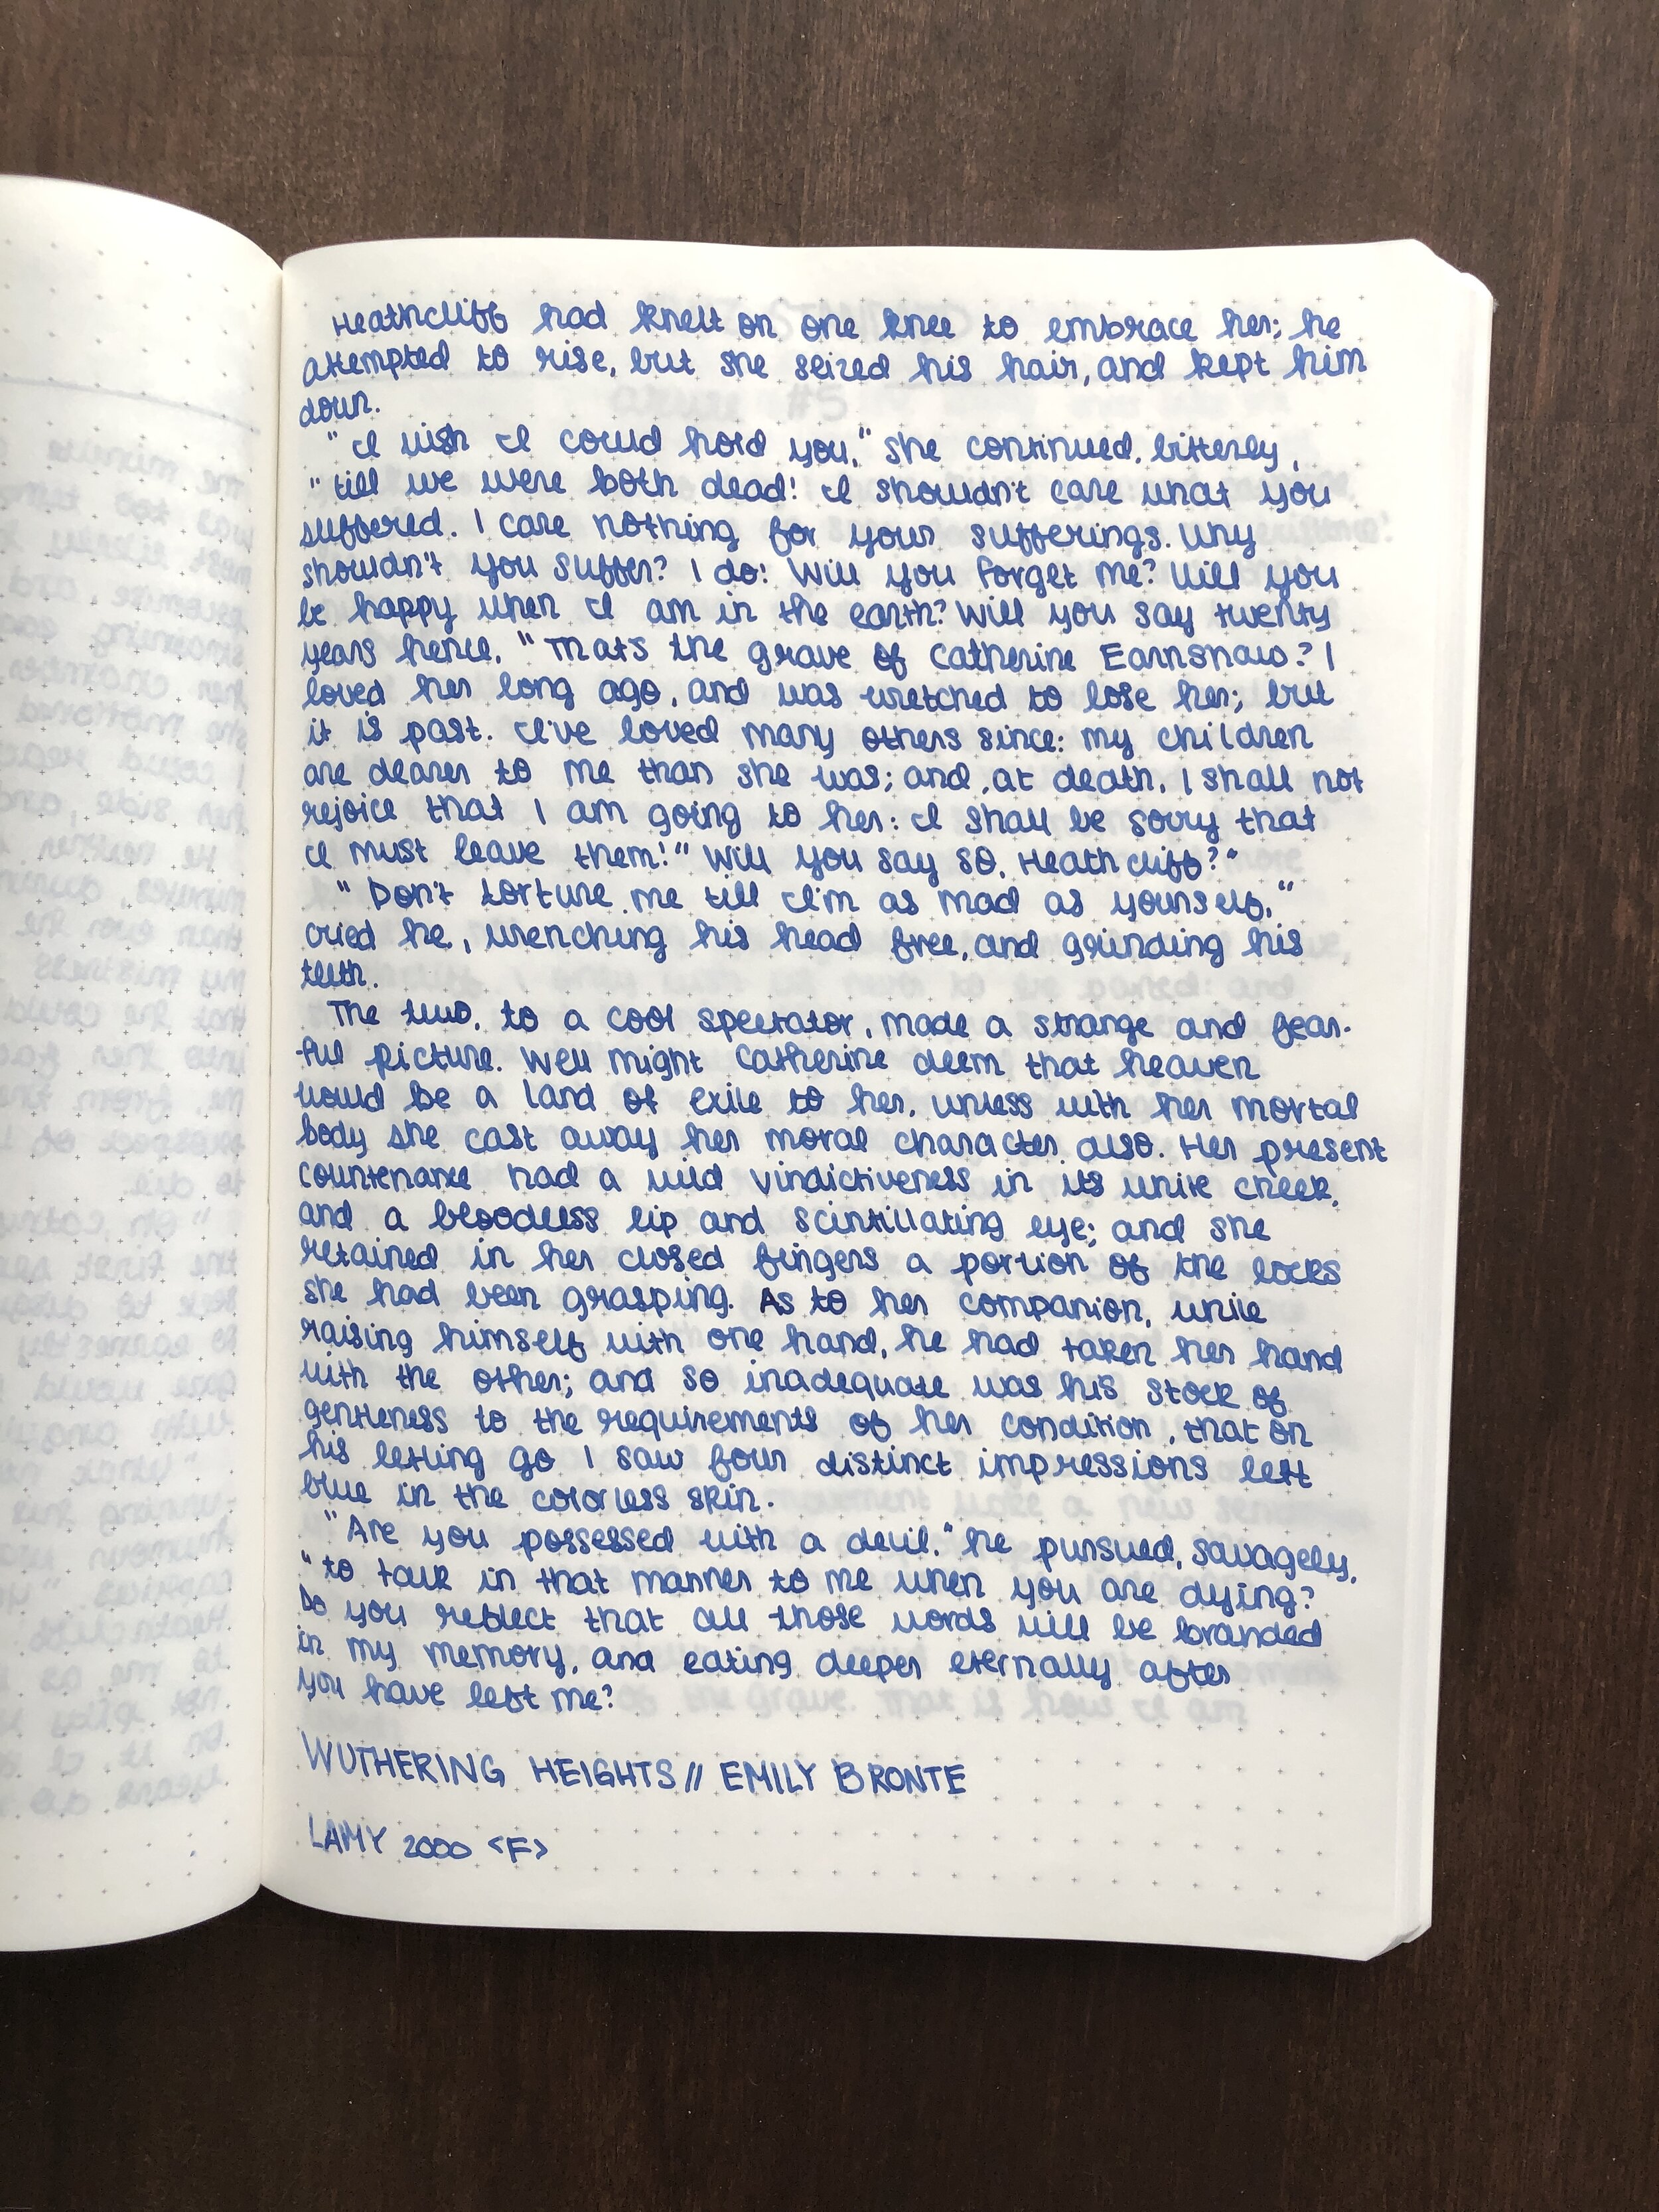 Heathcliff had knelt on one knee to embrace her; he
attempted to rise, but she seized his hair, and kept him
down.
"I wish I could hold you," she continued, bitterly,
"till we were both dead! I shouldn't care what you
suffered. I care nothing for your sufferings. Why
shouldn't you suffer? I do! Will you forget me? Will you
be happy when I am in the earth? Will you say twenty
years hence, "That's the grave of Catherine Earnshaw? I
loved her long ago, and was wretched to lose her; but
it is past. I've loved many others since: my children
are dearer to me than she was; and, at death, I shall not
rejoice that I am going to her: I shall be sorry that
I must leave them!" Will you say so, Heathcliff?"
"Don't torture me till I'm as mad as yourself,"
cried he, wrenching his head free, and grinding his
teeth.
The two, to a cool spectator, made a strange and fear-
ful picture. Well might Catherine deem that heaven
would be a land of exile to her, unless with her mortal
body she cast away her moral character also. Her present
countenance had a wild vindictiveness in its white cheek,
and a bloodless lip and scintillating eye; and she
retained in her closed fingers a portion of the locks
she had been grasping. As to her companion, while
raising himself with one hand, he had taken her hand
with the other; and so inadequate was his stock of
gentleness to the requirements of her condition, that on
his letting go I saw four distinct impressions left
blue in the colorless skin.
"Are you possessed with a devil," he pursued, savagely,
"to talk in that manner to me when you are dying?
Do you reflect that all those words will be branded
in my memory, and eating deeper eternally after
you have left me?
WUTHERING HEIGHTS // EMILY BRONTE
LAMY 2000 <F>